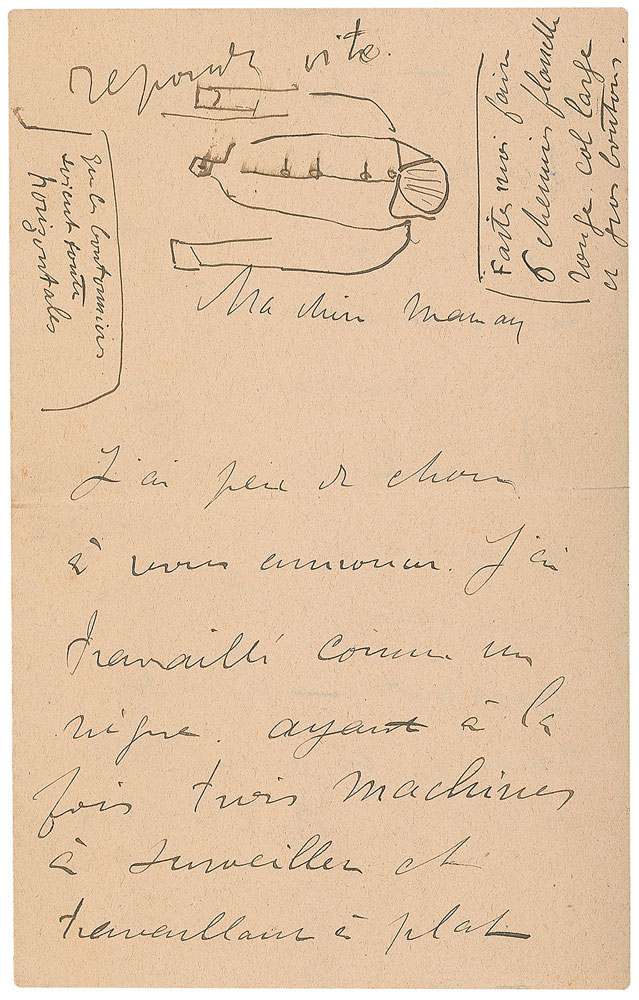 reponds vite.
Faites moi faire
6 chemises flanelle
rouge. col large
et gros boutons.
Que les boutonnieres
soient toute
horizontales
Ma chère Maman
J'ai peu de choses
à vous annoncer. J'ai
travaillé comme un
nègre. ayant à la
fois trois machines
à surveiller et
travaillant à plat